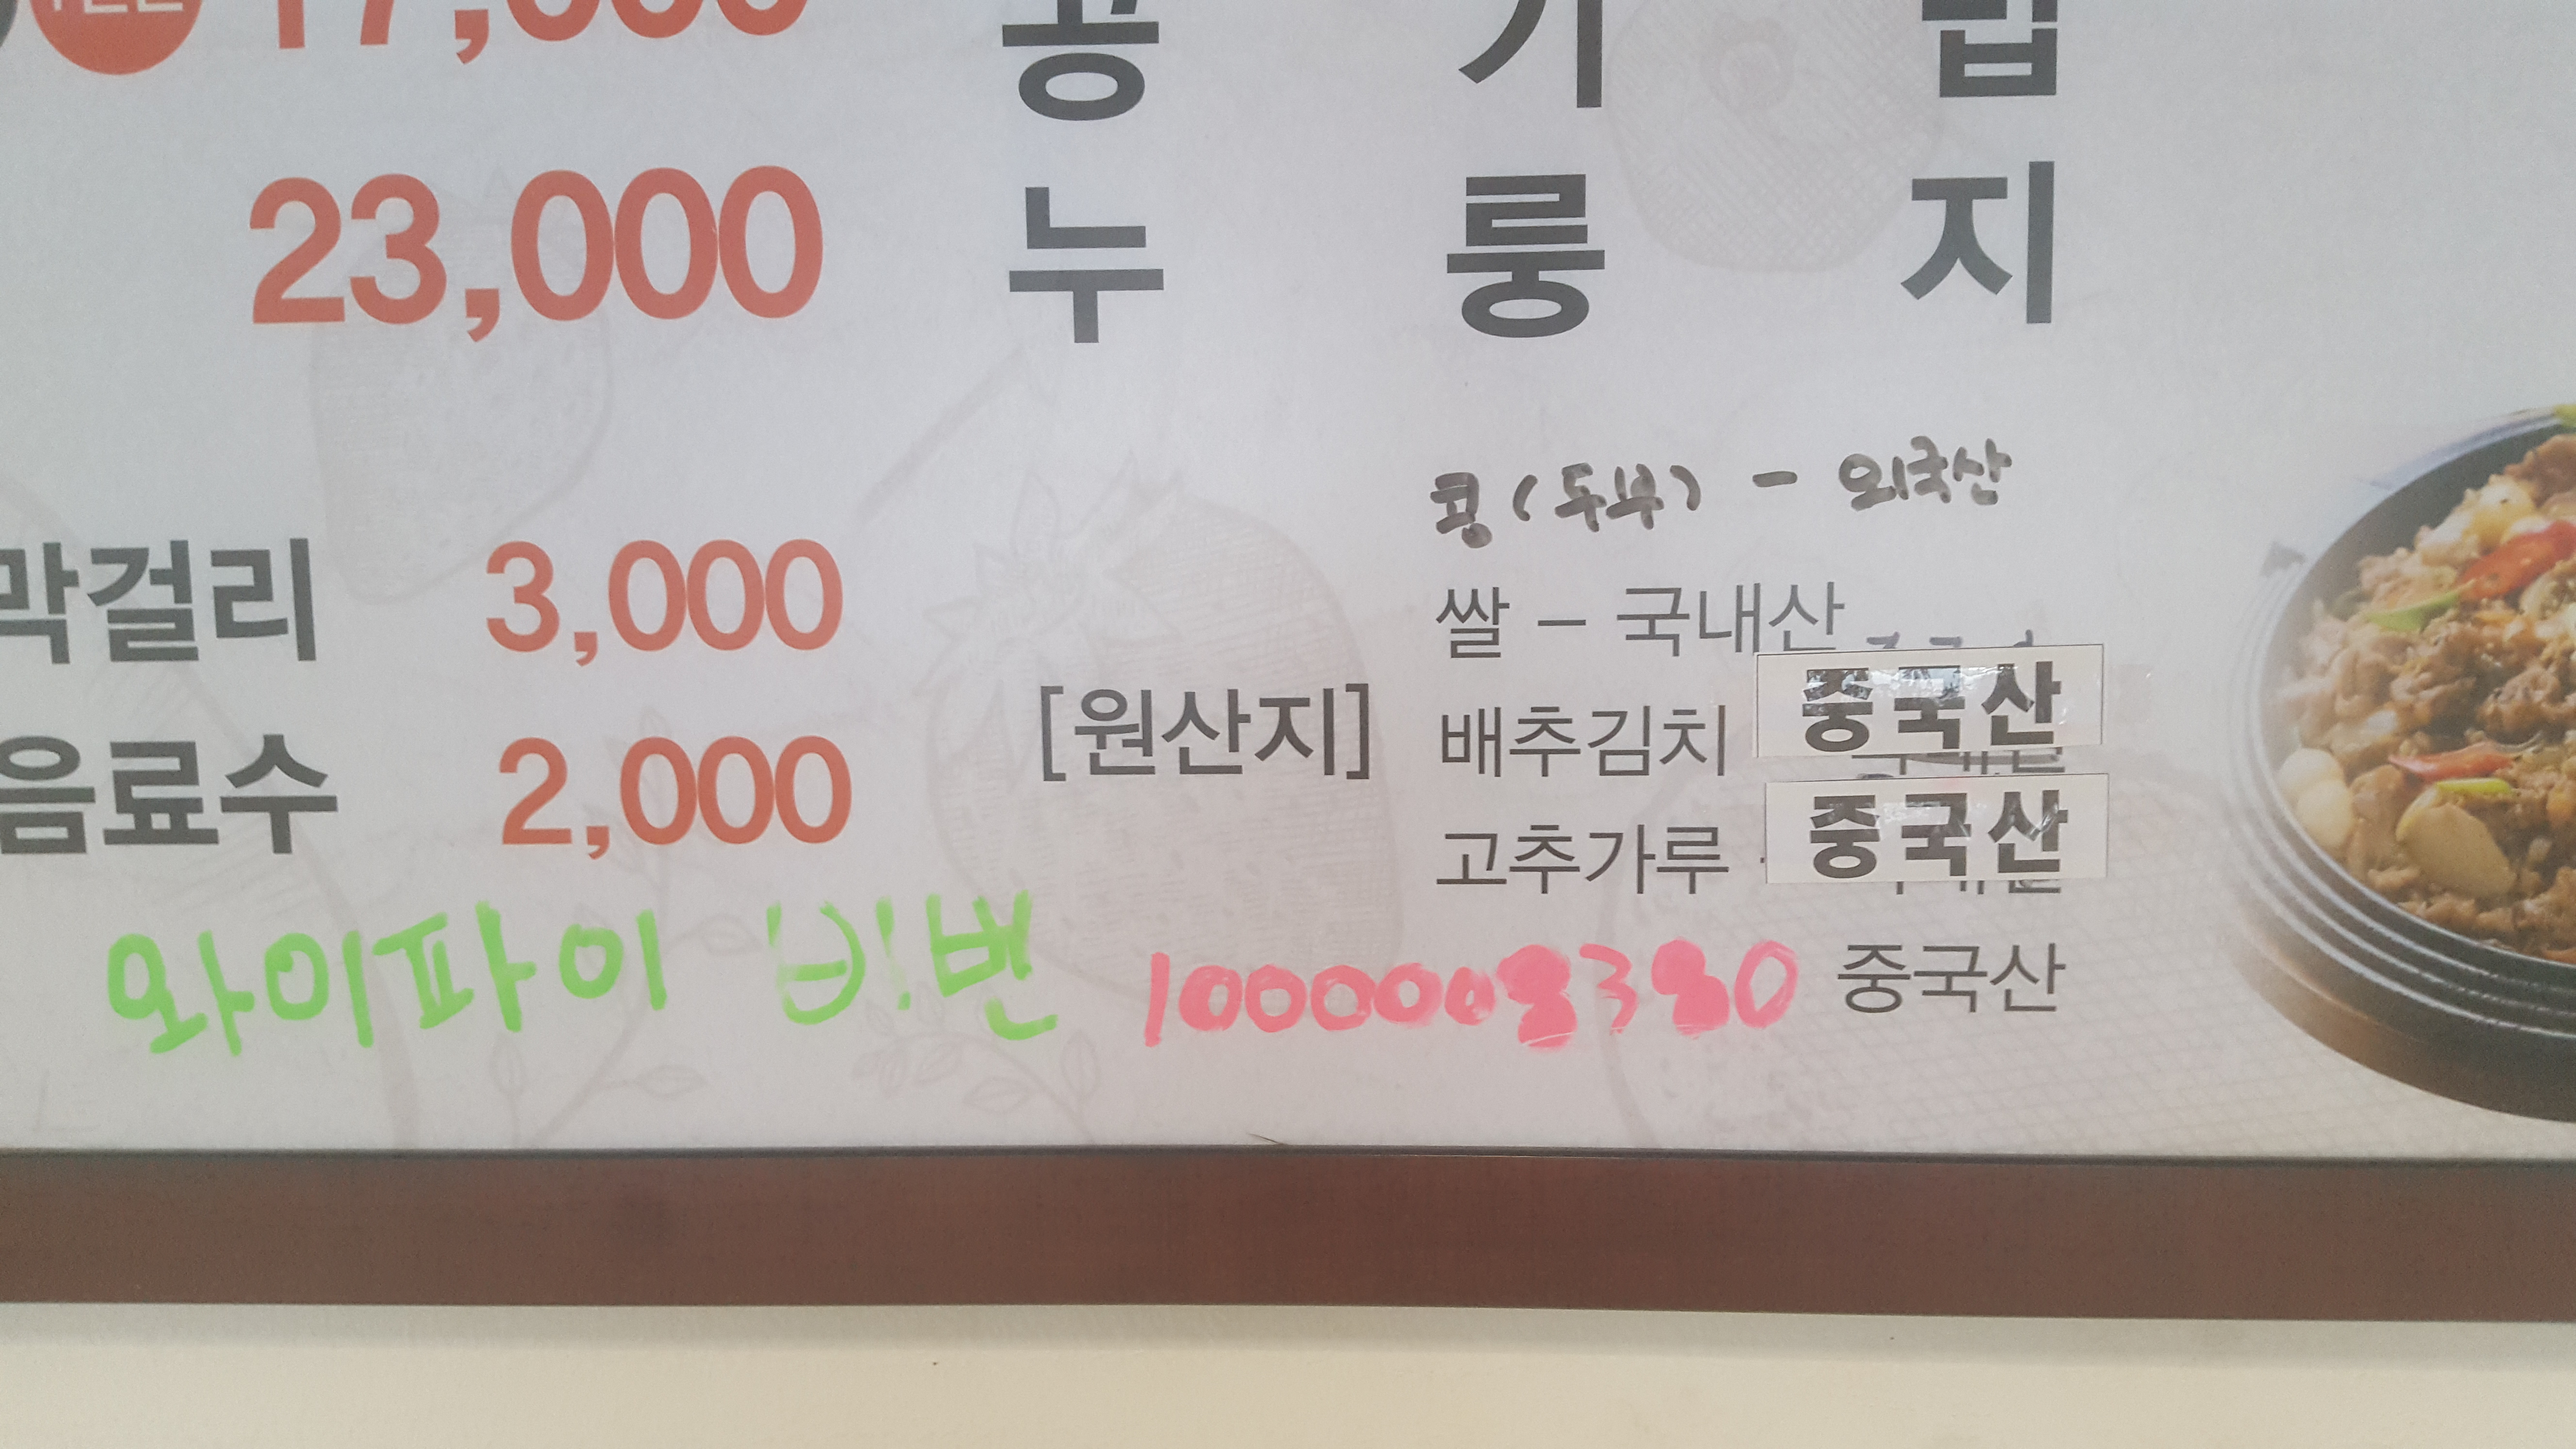 17,000 공 기 밥
23,000 누 룽 지
콩(두부) - 외국산
막걸리 3,000 쌀 - 국내산
[원산지] 배추김치 중국산
음료수 2,000 고추가루 중국산
와이파이 비번 1000008380 중국산